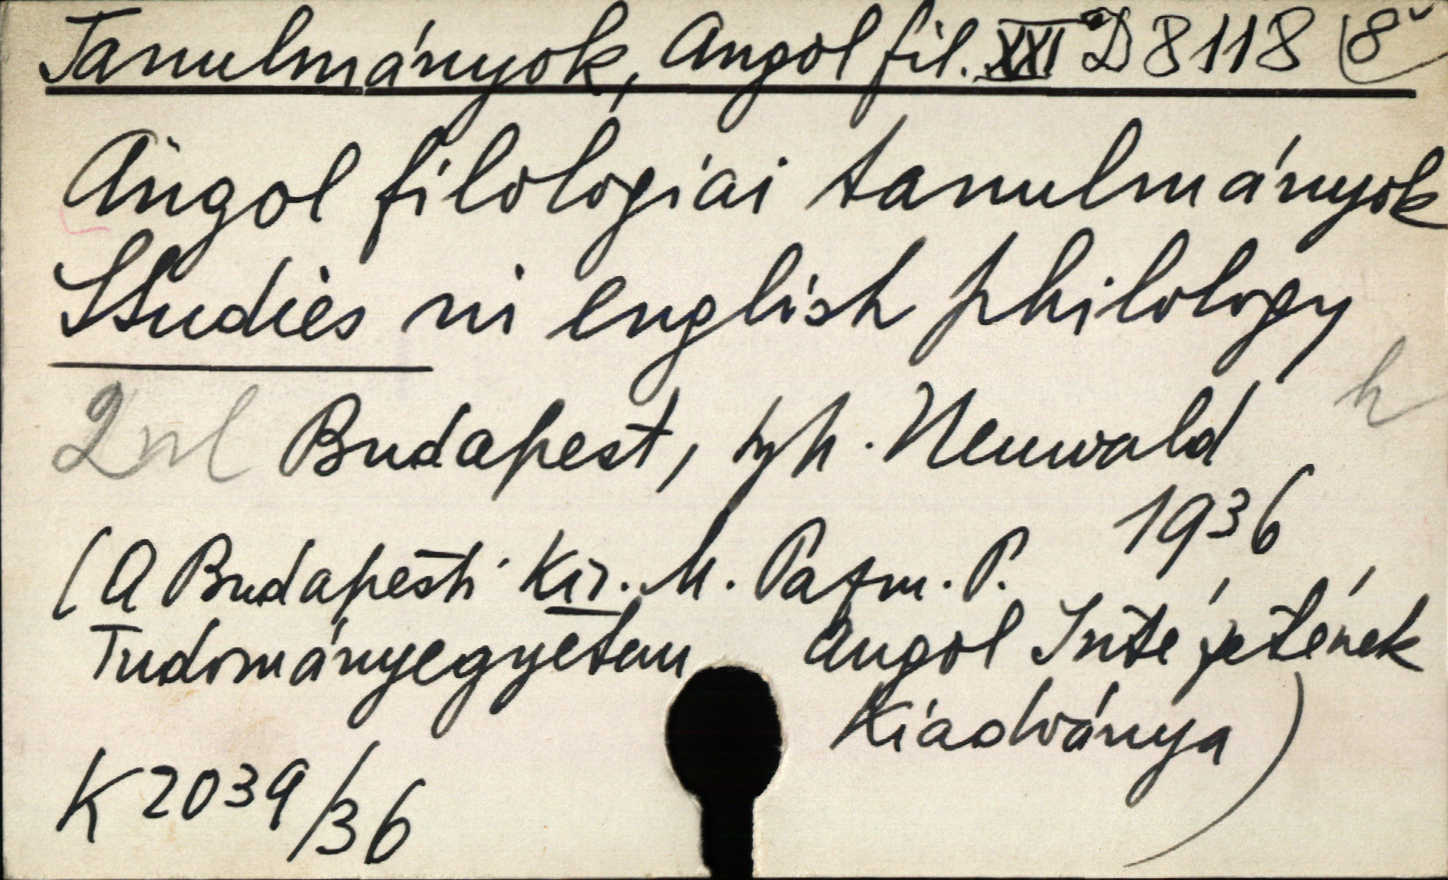 Tanulmányok, Angol fil. XXI D 8118 8°
Angol filológiai tanulmányok
Studies in english philology
2 vol Budapest, Neuwald h
1936
(A Budapesti Kir. M. Pázm. P.
Tudományegyetem Angol Intézetének
Kiadványa)
K 2039/36